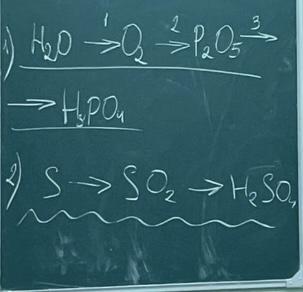 1) H₂O →¹ O₂ →² P₂O₅ →³
→ H₃PO₄
2) S → SO₂ → H₂SO₄